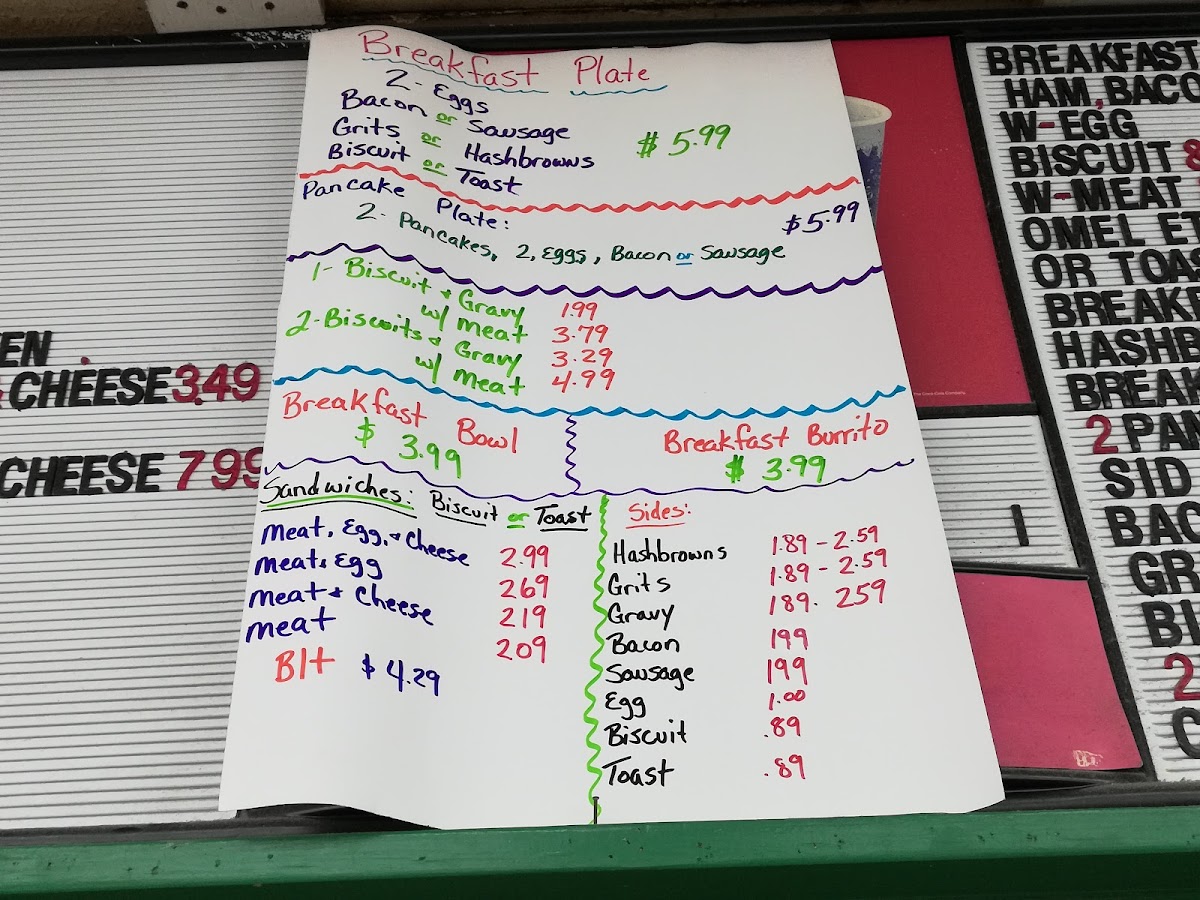 Breakfast Plate
2- Eggs
Bacon or Sausage
Grits or Hashbrowns $5.99
Biscuit or Toast
Pancake Plate: $5.99
2- Pancakes, 2, Eggs, Bacon or Sausage
1- Biscuit & Gravy 1.99
w/ meat 3.79
2-Biscuits & Gravy 3.29
w/ meat 4.99
Breakfast Bowl
$ 3.99
Breakfast Burrito
$ 3.99
Sandwiches: Biscuit or Toast
Meat, Egg, & Cheese 2.99
Meat, Egg 269
Meat & Cheese 219
Meat 209
Blt $4.29
Sides:
Hashbrowns 1.89 - 2.59
Grits 1.89 - 2.59
Gravy 189. 259
Bacon 199
Sausage 199
Egg 1.00
Biscuit .89
Toast .89
EN
CHEESE 3.49
CHEESE 799
BREAKFAST
HAM, BACO
W-EGG
BISCUIT 8
W-MEAT
OMEL ET
OR TOAS
BREAKF
HASHB
BREAK
2 PAN
SID
BAC
GR
BI
2
C
1